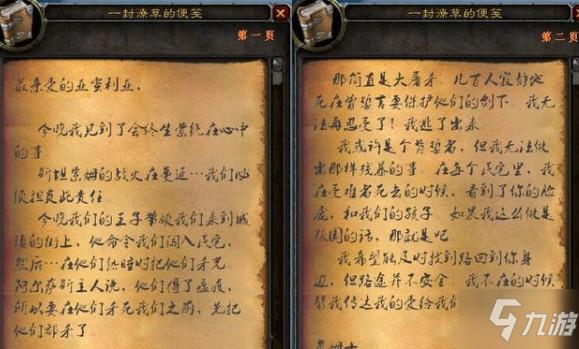 一封潦草的便笺
第一页
最亲爱的亚蜜利亚，
今晚我见到了会终生萦绕在心中
的事
斯坦索姆的战火在蔓延…我们必
须担负此责任
今晚我们的王子带领我们来到城
镇的街上，他命令我们闯入民宅，
然后…在他们熟睡时把他们杀死
阿尔萨斯主人说，他们得了瘟疫，
所以要在他们杀死我们之前，先把
他们都杀了
一封潦草的便笺
第二页
那简直是大屠杀 几百人寂静地
死在曾誓言要保护他们的剑下 我无
法再忍受了！我逃了出来
我或许是个背誓者，但我无法做
出那样残暴的事 在每个民宅里，我
在受难者死去的时候，看到了你的脸
庞，和我们的孩子 如果我这么做是
叛国的话，那就是吧
我希望能及时找到路回到你身
边，但路途并不安全 我不在的时候
替我传达我的爱给我们
姆士
九游